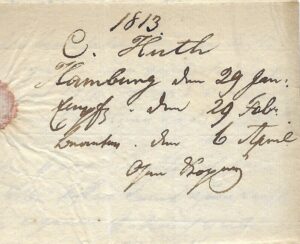 1813
C. Huth
Hamburg den 29 Jan.
Empf. den 29 Feb.
den 6 April